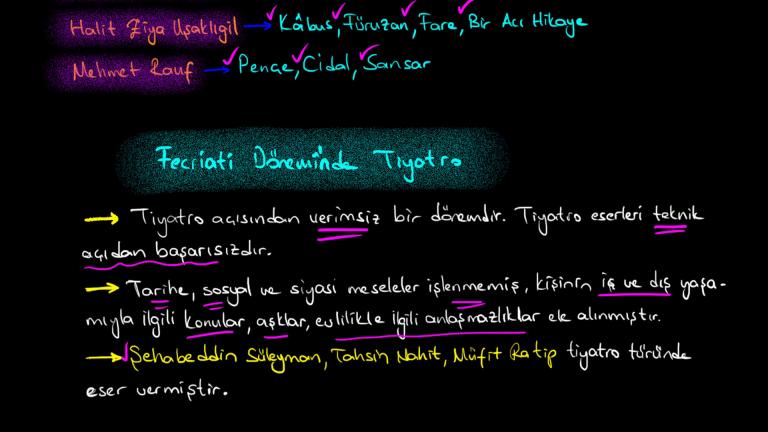 Halit Ziya Uşaklıgil → Kâbus, Füruzan, Fare, Bir Acı Hikaye
Mehmet Rauf → Pençe, Cidal, Sansar
Fecriati Döneminde Tiyatro
→ Tiyatro açısından verimsiz bir dönemdir. Tiyatro eserleri teknik
açıdan başarısızdır.
→ Tarihe, sosyal ve siyasi meseleler işlenmemiş, kişinin iç ve dış yaşa-
mıyla ilgili konular, aşklar, evlilikle ilgili anlaşmazlıklar ele alınmıştır.
→ Şehabeddin Süleyman, Tahsin Nahit, Müfit Ratip tiyatro türünde
eser vermiştir.